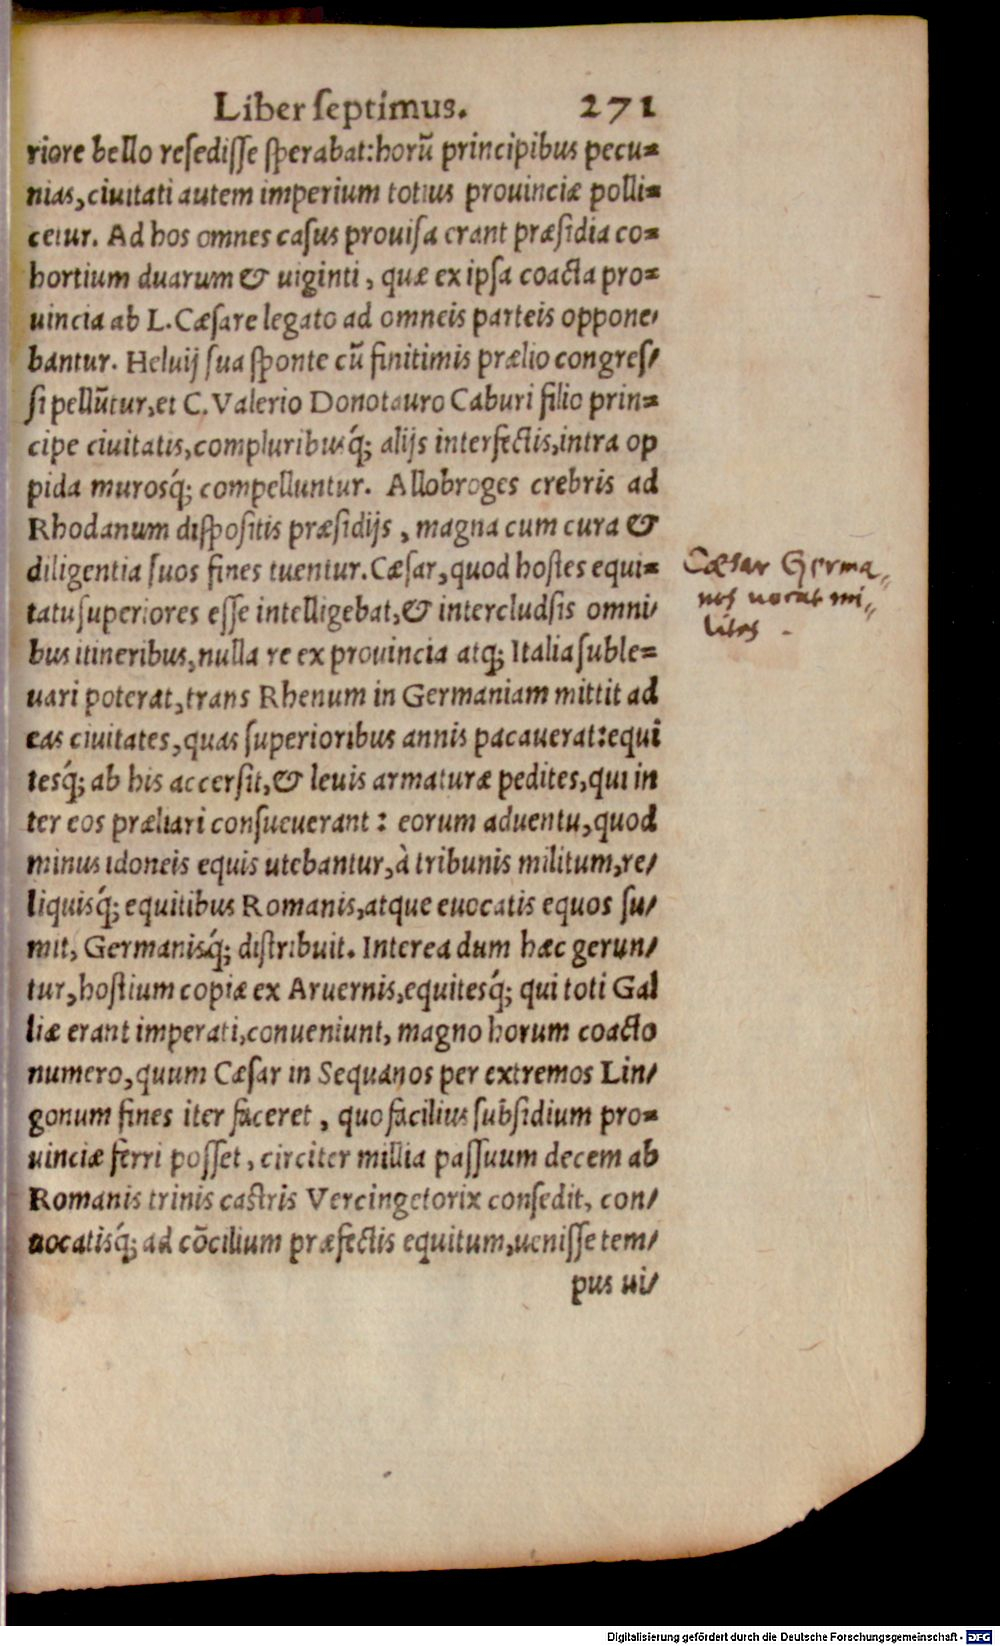 Liber ſeptimus. 271
riore bello reſediſſe ſperabat:horū principibus pecu=
nias,ciuitati autem imperium totius prouinciæ polli=
cetur. Ad hos omnes caſus prouiſa erant præſidia co=
hortium duarum & uiginti, quæ ex ipſa coacta pro=
uincia ab L.Cæſare legato ad omneis parteis oppone/
bantur. Heluij ſua ſponte cū finitimis prælio congreſ/
ſi pellūtur,et C.Valerio Donotauro Caburi filio prin=
cipe ciuitatis,compluribusq́; alijs interfectis,intra op
pida murosq́; compelluntur. Allobroges crebris ad
Rhodanum diſpoſitis præſidijs, magna cum cura &
diligentia ſuos fines tuentur.Cæſar,quod hoſtes equi=
tatu ſuperiores eſſe intelligebat,& intercludſis omni/
bus itineribus,nulla re ex prouincia atq; Italia ſuble=
uari poterat,trans Rhenum in Germaniam mittit ad
eas ciuitates,quas ſuperioribus annis pacauerat:equi
tesq́; ab his accerſit,& leuis armaturæ pedites,qui in
ter eos præliari conſueuerant: eorum aduentu,quod
minus idoneis equis utebantur,à tribunis militum,re/
liquisq́; equitibus Romanis,atque euocatis equos ſu/
mit, Germanisq́; diſtribuit. Interea dum hæc gerun/
tur,hoſtium copiæ ex Aruernis,equitesq́; qui toti Gal
liæ erant imperati,conueniunt, magno horum coacto
numero,quum Cæſar in Sequanos per extremos Lin/
gonum fines iter faceret, quo facilius ſubſidium pro=
uinciæ ferri poſſet, circiter millia paſſuum decem ab
Romanis trinis caſtris Vercingetorix conſedit, con/
uocatisq́; ad cōcilium præfectis equitum,ueniſſe tem/
pus ui/
Cæsar Germa„
nos uocat mi„
lites.
Digitalisierung gefördert durch die Deutsche Forschungsgemeinschaft - DFG